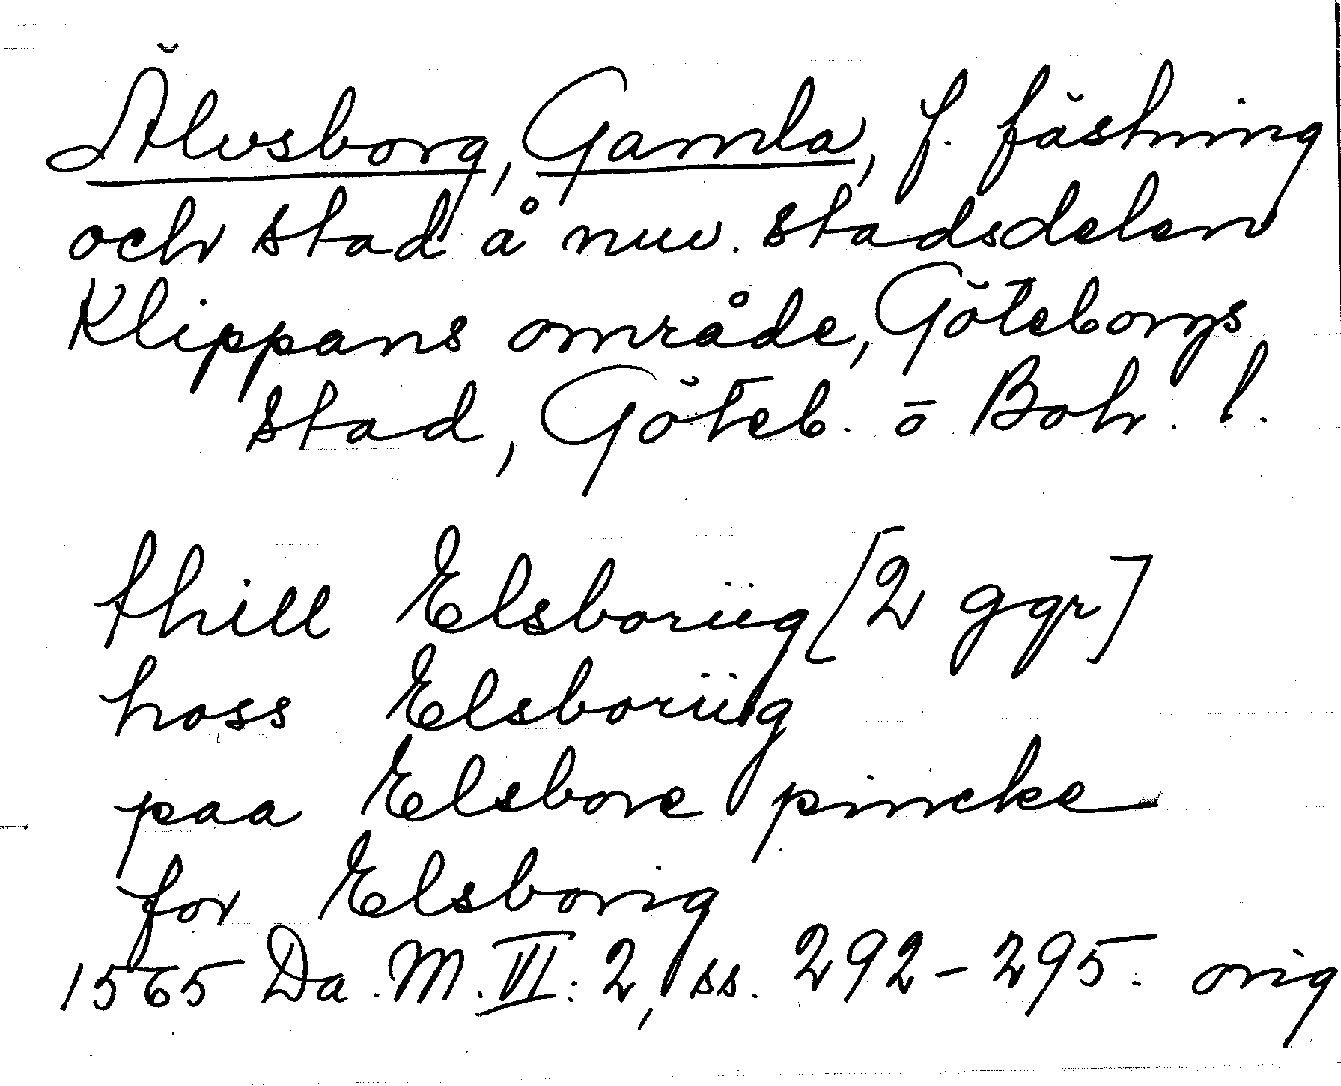 Älvsborg, Gamla, f. fästning
och stad å nuv. stadsdelen
Klippans område, Göteborgs
stad, Göteb. o Boh. l.
thill Elsboriig [2 ggr]
hoss Elsboriig
paa Elsbore pincke
for Elsborig
1565 Da. M. VI: 2, ss. 292-295. orig